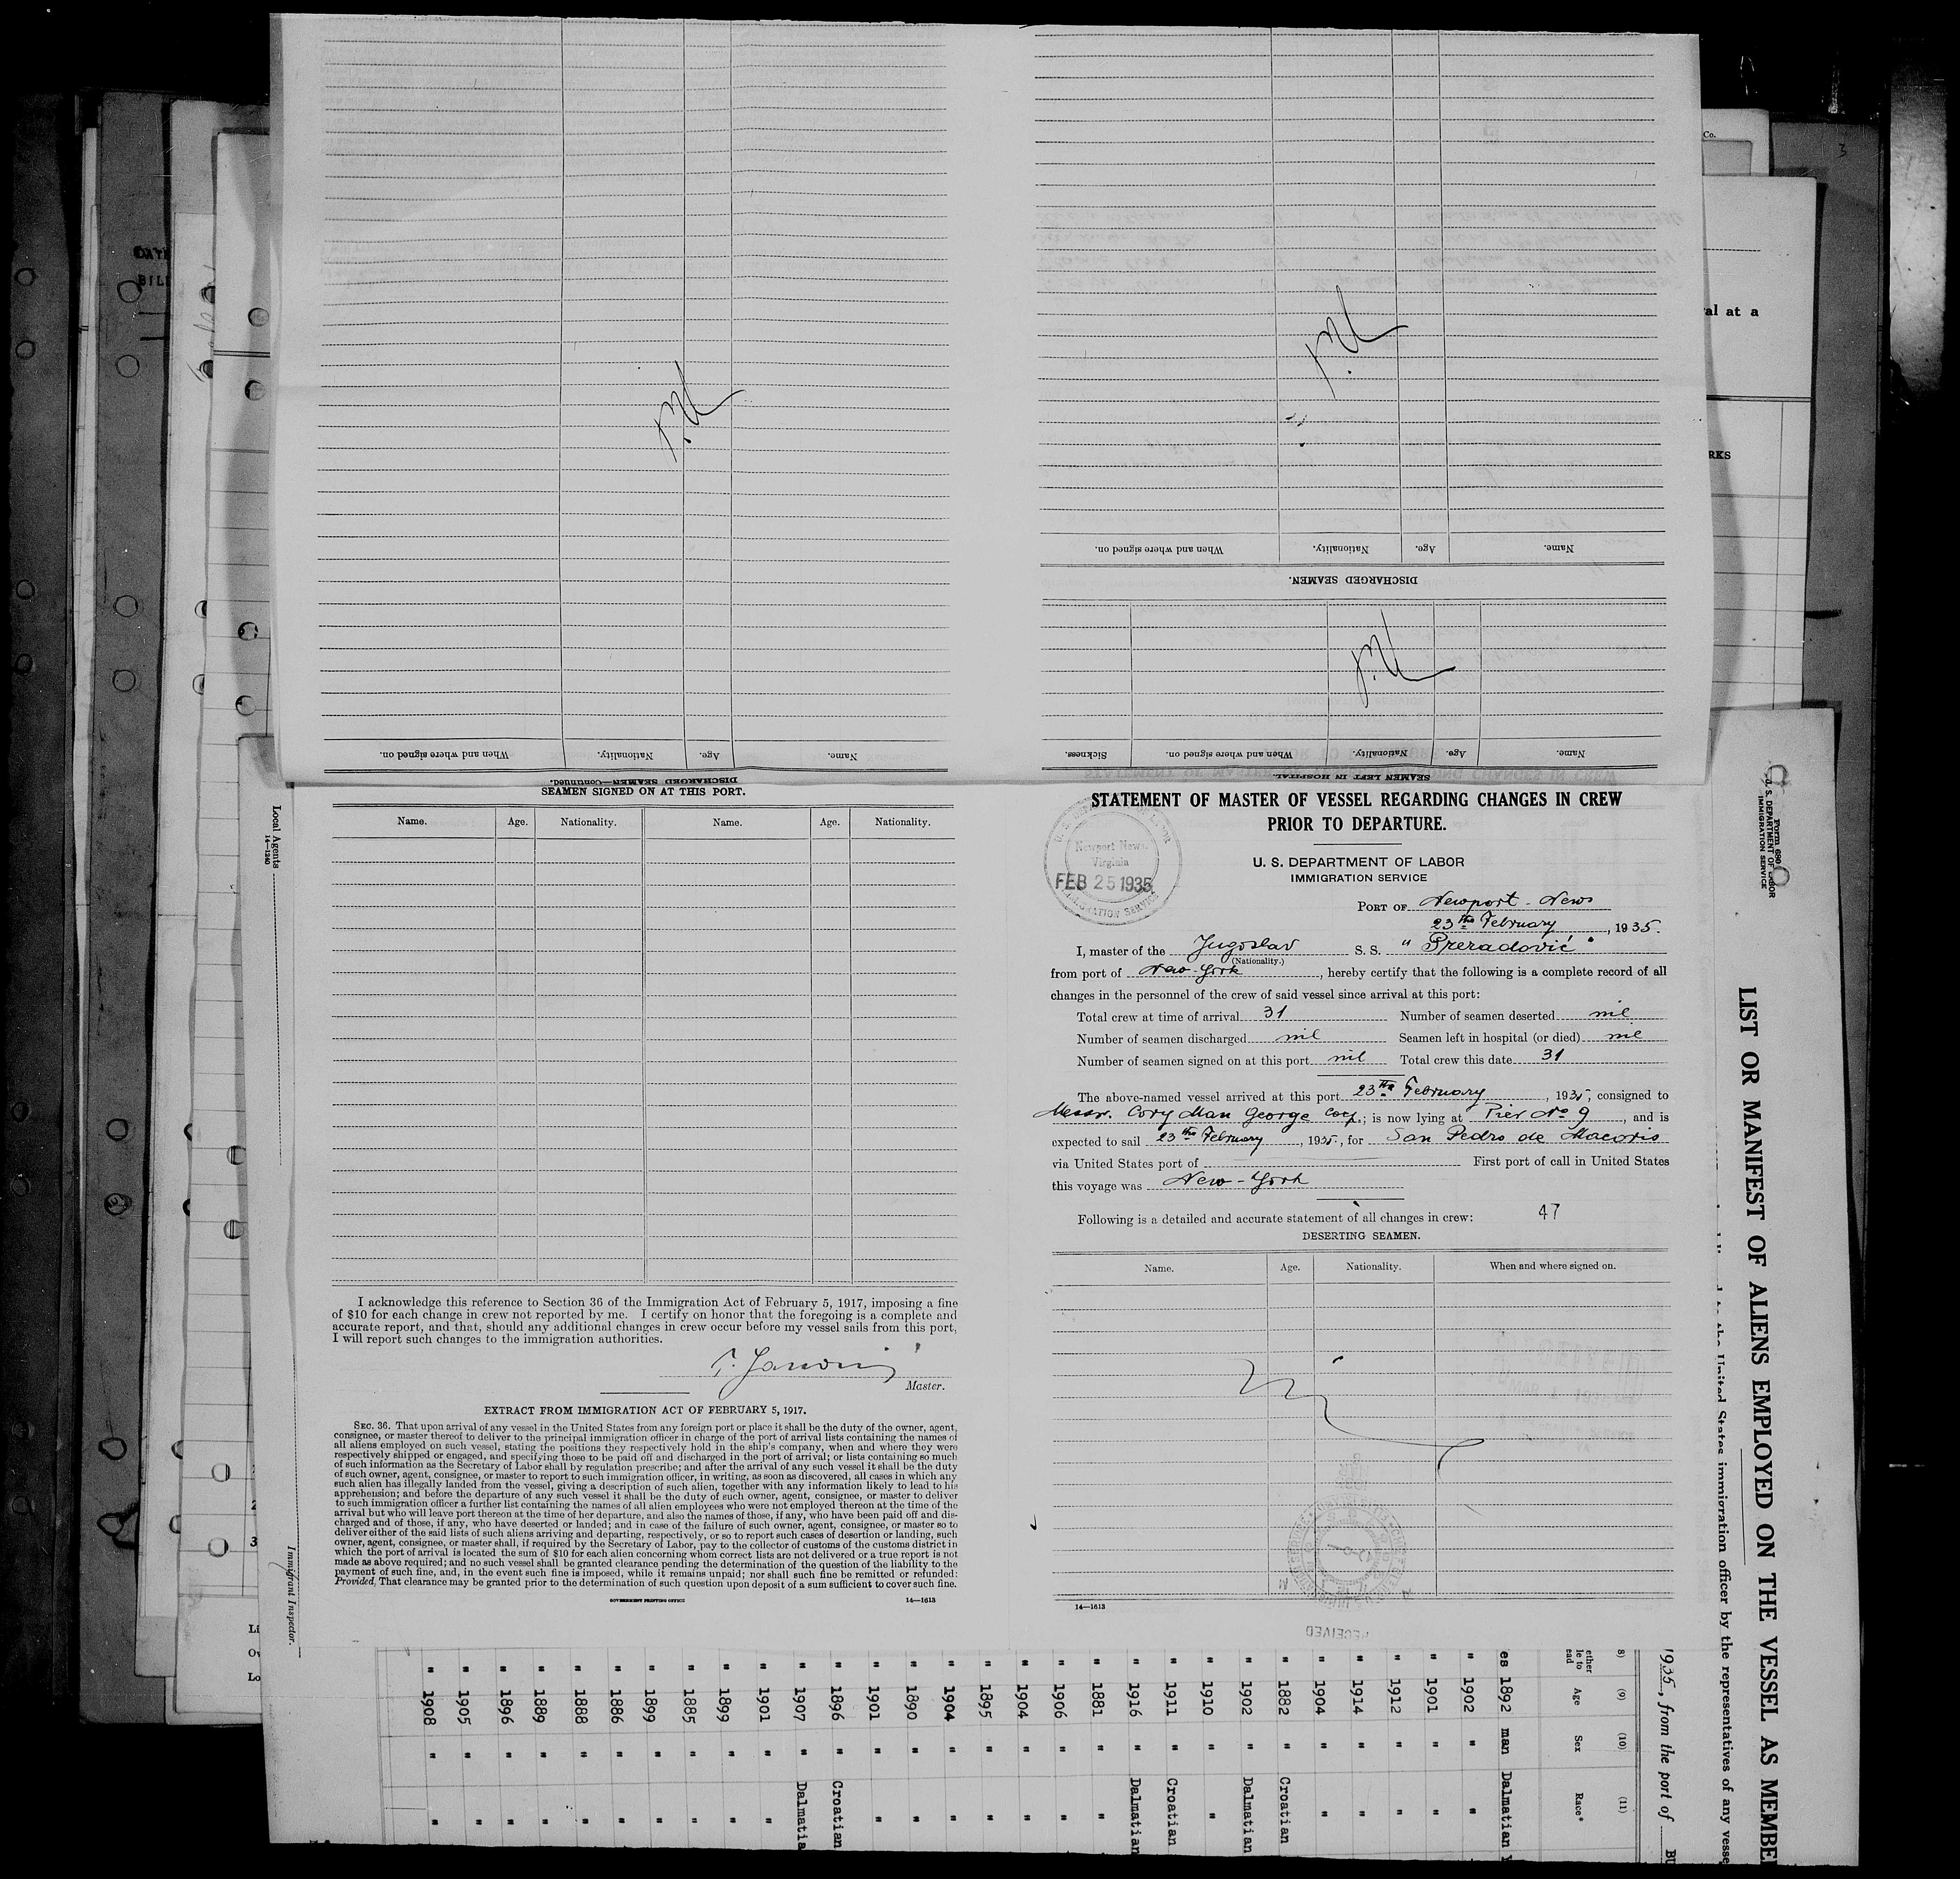 When and where signed on.
Nationality.
Age.
Name.
DISCHARGED SEAMEN—Continued.
Name.
Age.
Nationality.
When and where signed on.
DISCHARGED SEAMEN.
nil
nil
nil
Sickness.
When and where signed on.
Nationality.
Age.
Name.
SEAMEN LEFT IN HOSPITAL.
SEAMEN SIGNED ON AT THIS PORT.
Name. Age. Nationality. Name. Age. Nationality.
I acknowledge this reference to Section 36 of the Immigration Act of February 5, 1917, imposing a fine
of $10 for each change in crew not reported by me. I certify on honor that the foregoing is a complete and
accurate report, and that, should any additional changes in crew occur before my vessel sails from this port,
I will report such changes to the immigration authorities.
Master.
EXTRACT FROM IMMIGRATION ACT OF FEBRUARY 5, 1917.
SEC. 36. That upon arrival of any vessel in the United States from any foreign port or place it shall be the duty of the owner, agent,
consignee, or master thereof to deliver to the principal immigration officer in charge of the port of arrival lists containing the names of
all aliens employed on such vessel, stating the positions they respectively hold in the ship's company, when and where they were
respectively shipped or engaged, and specifying those to be paid off and discharged in the port of arrival; or lists containing so much
of such information as the Secretary of Labor shall by regulation prescribe; and after the arrival of any such vessel it shall be the duty
of such owner, agent, consignee, or master to report to such immigration officer, in writing, as soon as discovered, all cases in which any
such alien has illegally landed from the vessel, giving a description of such alien, together with any information likely to lead to his
apprehension; and before the departure of any such vessel it shall be the duty of such owner, agent, consignee, or master to deliver
to such immigration officer a further list containing the names of all alien employees who were not employed thereon at the time of the
arrival but who will leave port thereon at the time of her departure, and also the names of those, if any, who have been paid off and dis-
charged and of those, if any, who have deserted or landed; and in case of the failure of such owner, agent, consignee, or master so to
deliver either of the said lists of such aliens arriving and departing, respectively, or so to report such cases of desertion or landing, such
owner, agent, consignee, or master shall, if required by the Secretary of Labor, pay to the collector of customs of the customs district in
which the port of arrival is located the sum of $10 for each alien concerning whom correct lists are not delivered or a true report is not
made as above required; and no such vessel shall be granted clearance pending the determination of the question of the liability to the
payment of such fine, and, in the event such fine is imposed, while it remains unpaid; nor shall such fine be remitted or refunded:
Provided, That clearance may be granted prior to the determination of such question upon deposit of a sum sufficient to cover such fine.
GOVERNMENT PRINTING OFFICE 14—1613
STATEMENT OF MASTER OF VESSEL REGARDING CHANGES IN CREW
PRIOR TO DEPARTURE.
U. S. DEPARTMENT OF LABOR
IMMIGRATION SERVICE
Newport News,
Virginia
FEB 25 1935
IMMIGRATION SERVICE
PORT OF Newport-News
23th February, 1935.
I, master of the Jugoslav S. S. "Preradović"
(Nationality.)
from port of New-York, hereby certify that the following is a complete record of all
changes in the personnel of the crew of said vessel since arrival at this port:
Total crew at time of arrival 31 Number of seamen deserted nil
Number of seamen discharged nil Seamen left in hospital (or died) nil
Number of seamen signed on at this port nil Total crew this date 31
The above-named vessel arrived at this port 23th February, 1935, consigned to
Messr. Cory Man George Corp.; is now lying at Pier No 9, and is
expected to sail 23th February, 1935, for San Pedro de Macoris
via United States port of First port of call in United States
this voyage was New-York
Following is a detailed and accurate statement of all changes in crew: 47
DESERTING SEAMEN.
Name. Age. Nationality. When and where signed on.
14—1613
RECEIVED
Form 680
U. S. DEPARTMENT OF LABOR
IMMIGRATION SERVICE
LIST OR MANIFEST OF ALIENS EMPLOYED ON THE VESSEL AS MEMBE
the United States immigration officer by the representatives of any vesse
1935, from the port of BU
(9) (10) (11)
Age Sex Race*
es 1892 man Dalmatian
" 1902 " "
" 1901 " "
" 1912 " "
" 1914 " "
" 1904 " "
" 1882 " Croatian
" 1902 " Dalmatian
" 1910 " "
" 1911 " Croatian
" 1916 " Dalmatian
" 1881 " "
" 1906 " "
" 1904 " "
" 1895 " "
" 1904 " "
" 1890 " "
" 1901 " "
" 1896 " Croatian
" 1907 " Dalmatia
" 1901 " "
" 1899 " "
" 1885 " "
" 1899 " "
" 1886 " "
" 1888 " "
" 1889 " "
" 1896 " "
" 1905 " "
" 1908 " "
Local Agents
14—1240
Immigrant Inspector.
BIL
Co.
3
al at a
RKS
2
3
Li
Ov
Lo